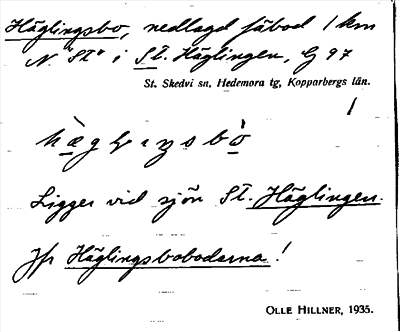 Häglingsbo, nedlagd fäbod 1 km
N. "St" i St. Häglingen, G 97
St. Skedvi sn, Hedemora tg, Kopparbergs län.
1
Ligger vid sjön St. Häglingen.
Jfr Häglingsbobodarna!
OLLE HILLNER, 1935.